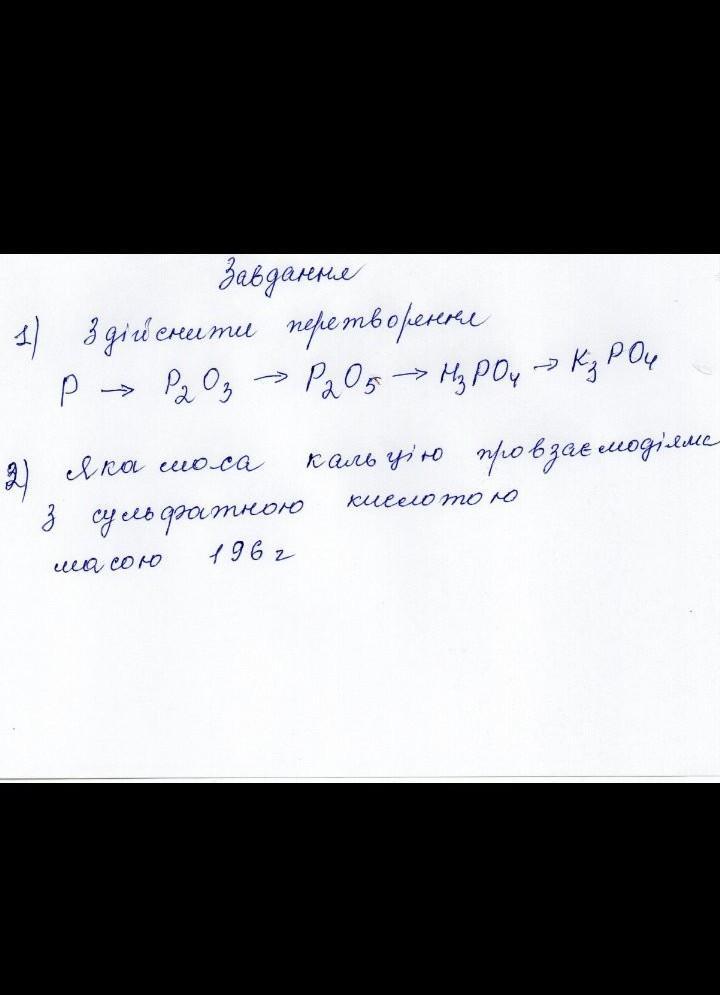 Завдання
1) Здійснити перетворення
P → P₂O₃ → P₂O₅ → H₃PO₄ → K₃PO₄
2) Яка маса кальцію провзаємодіяла
з сульфатною кислотою
масою 196 г